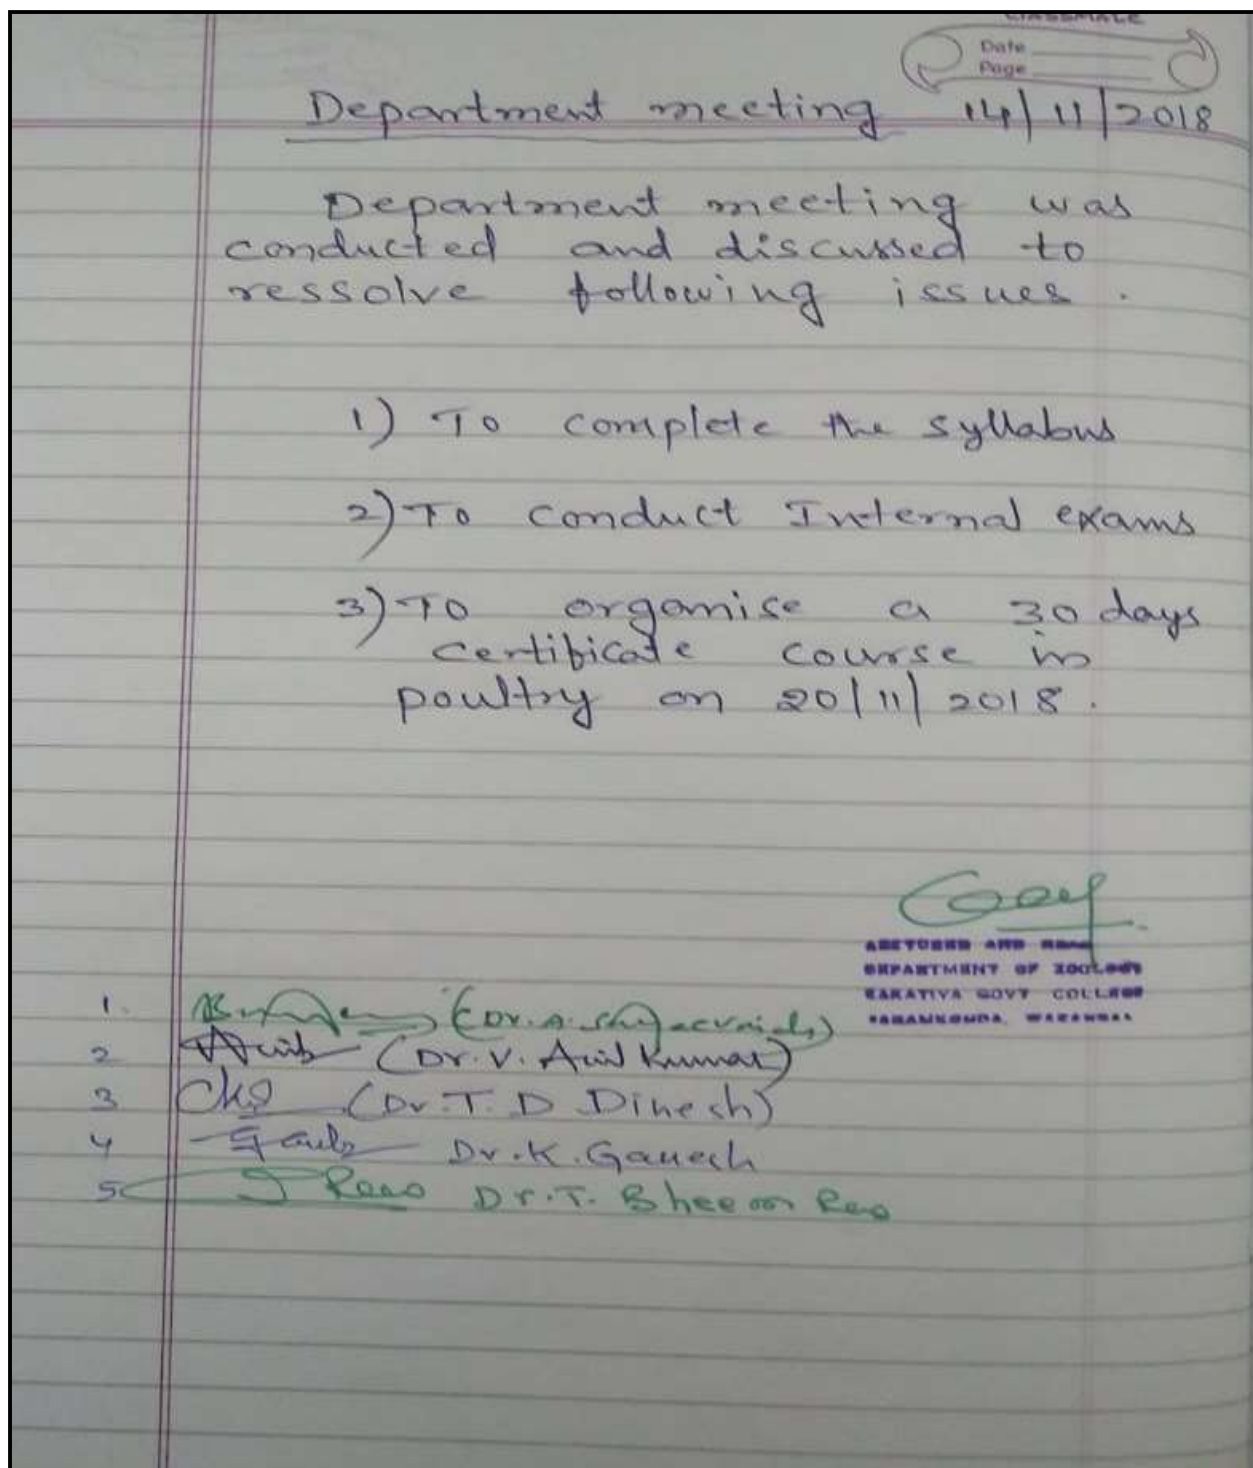 CLASSMATE
Date
Page
Department meeting 14/11/2018
Department meeting was
conducted and discussed to
ressolve following issues.
1) To complete the syllabus
2) To conduct Internal exams
3) To organise a 30 days
certificate course in
poultry on 20/11/2018.
DEPARTMENT OF ZOOLOGY
KAKATIYA GOVT COLLEGE
1.
2 (Dr. V. Anil Kumar)
3 (Dr. T. D Dinesh)
4 Dr. K. Ganesh
5 Rao Dr. T. Bheem Rao